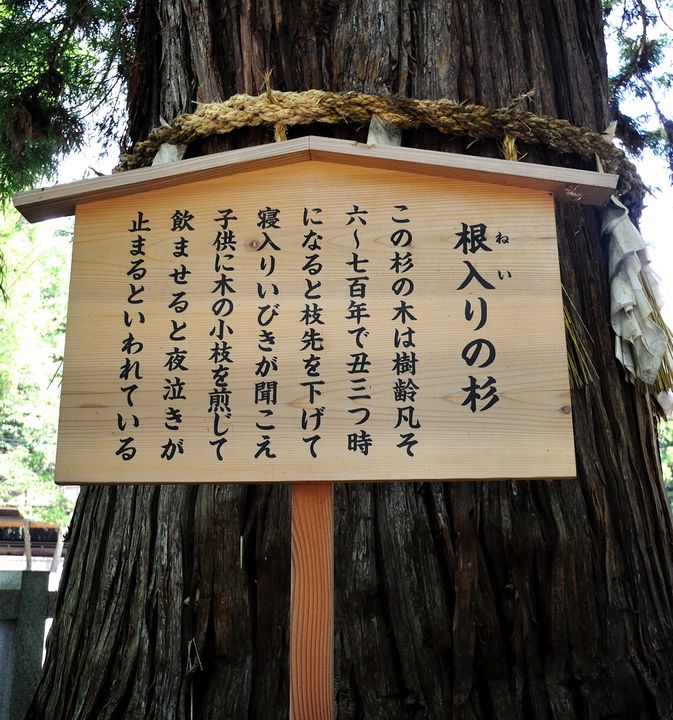 根入りの杉
ねい
この杉の木は樹齢凡そ
六～七百年で丑三つ時
になると枝先を下げて
寝入りいびきが聞こえ
子供に木の小枝を煎じて
飲ませると夜泣きが
止まるといわれている